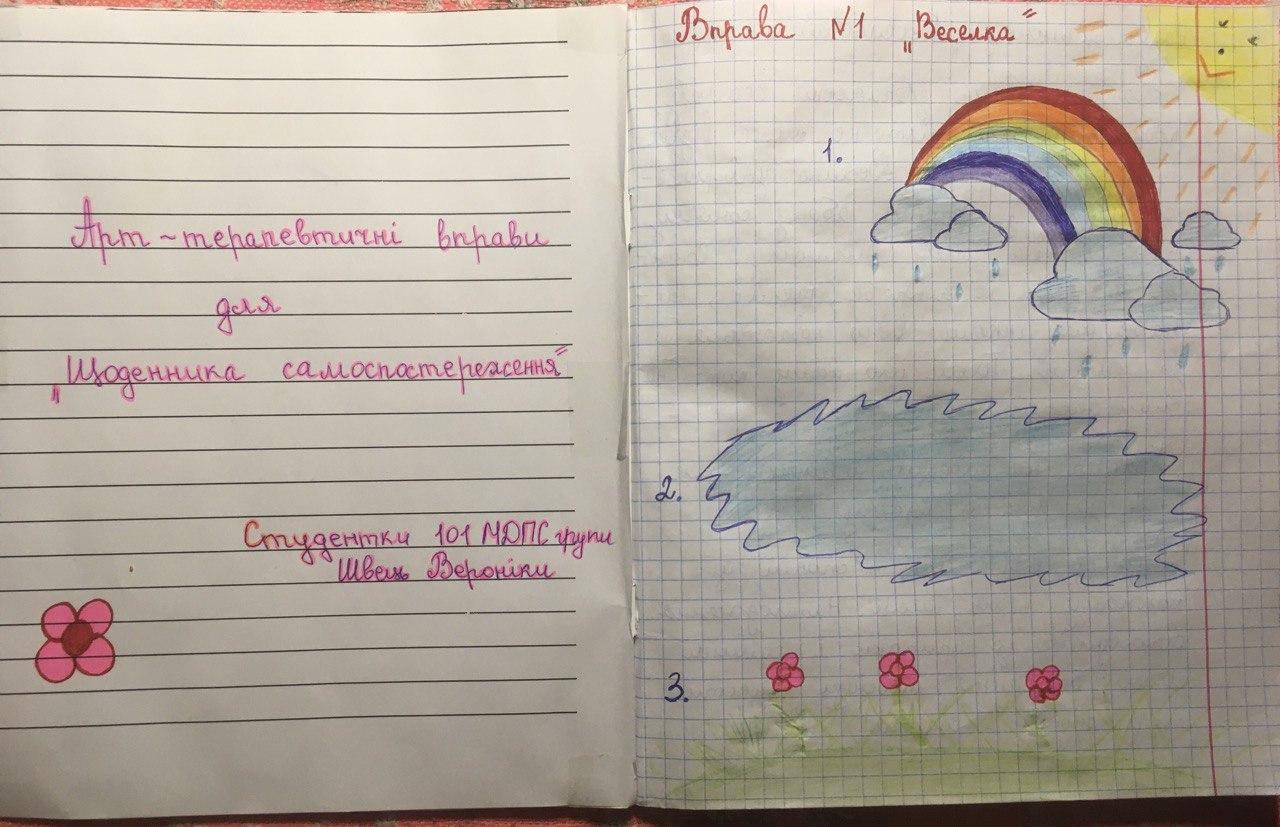 Арт-терапевтичні вправи
для
„Щоденника самоспостереження"
Студентки 101 МДПС групи
Швець Вероніки
Вправа №1 „Веселка"
1.
2.
3.